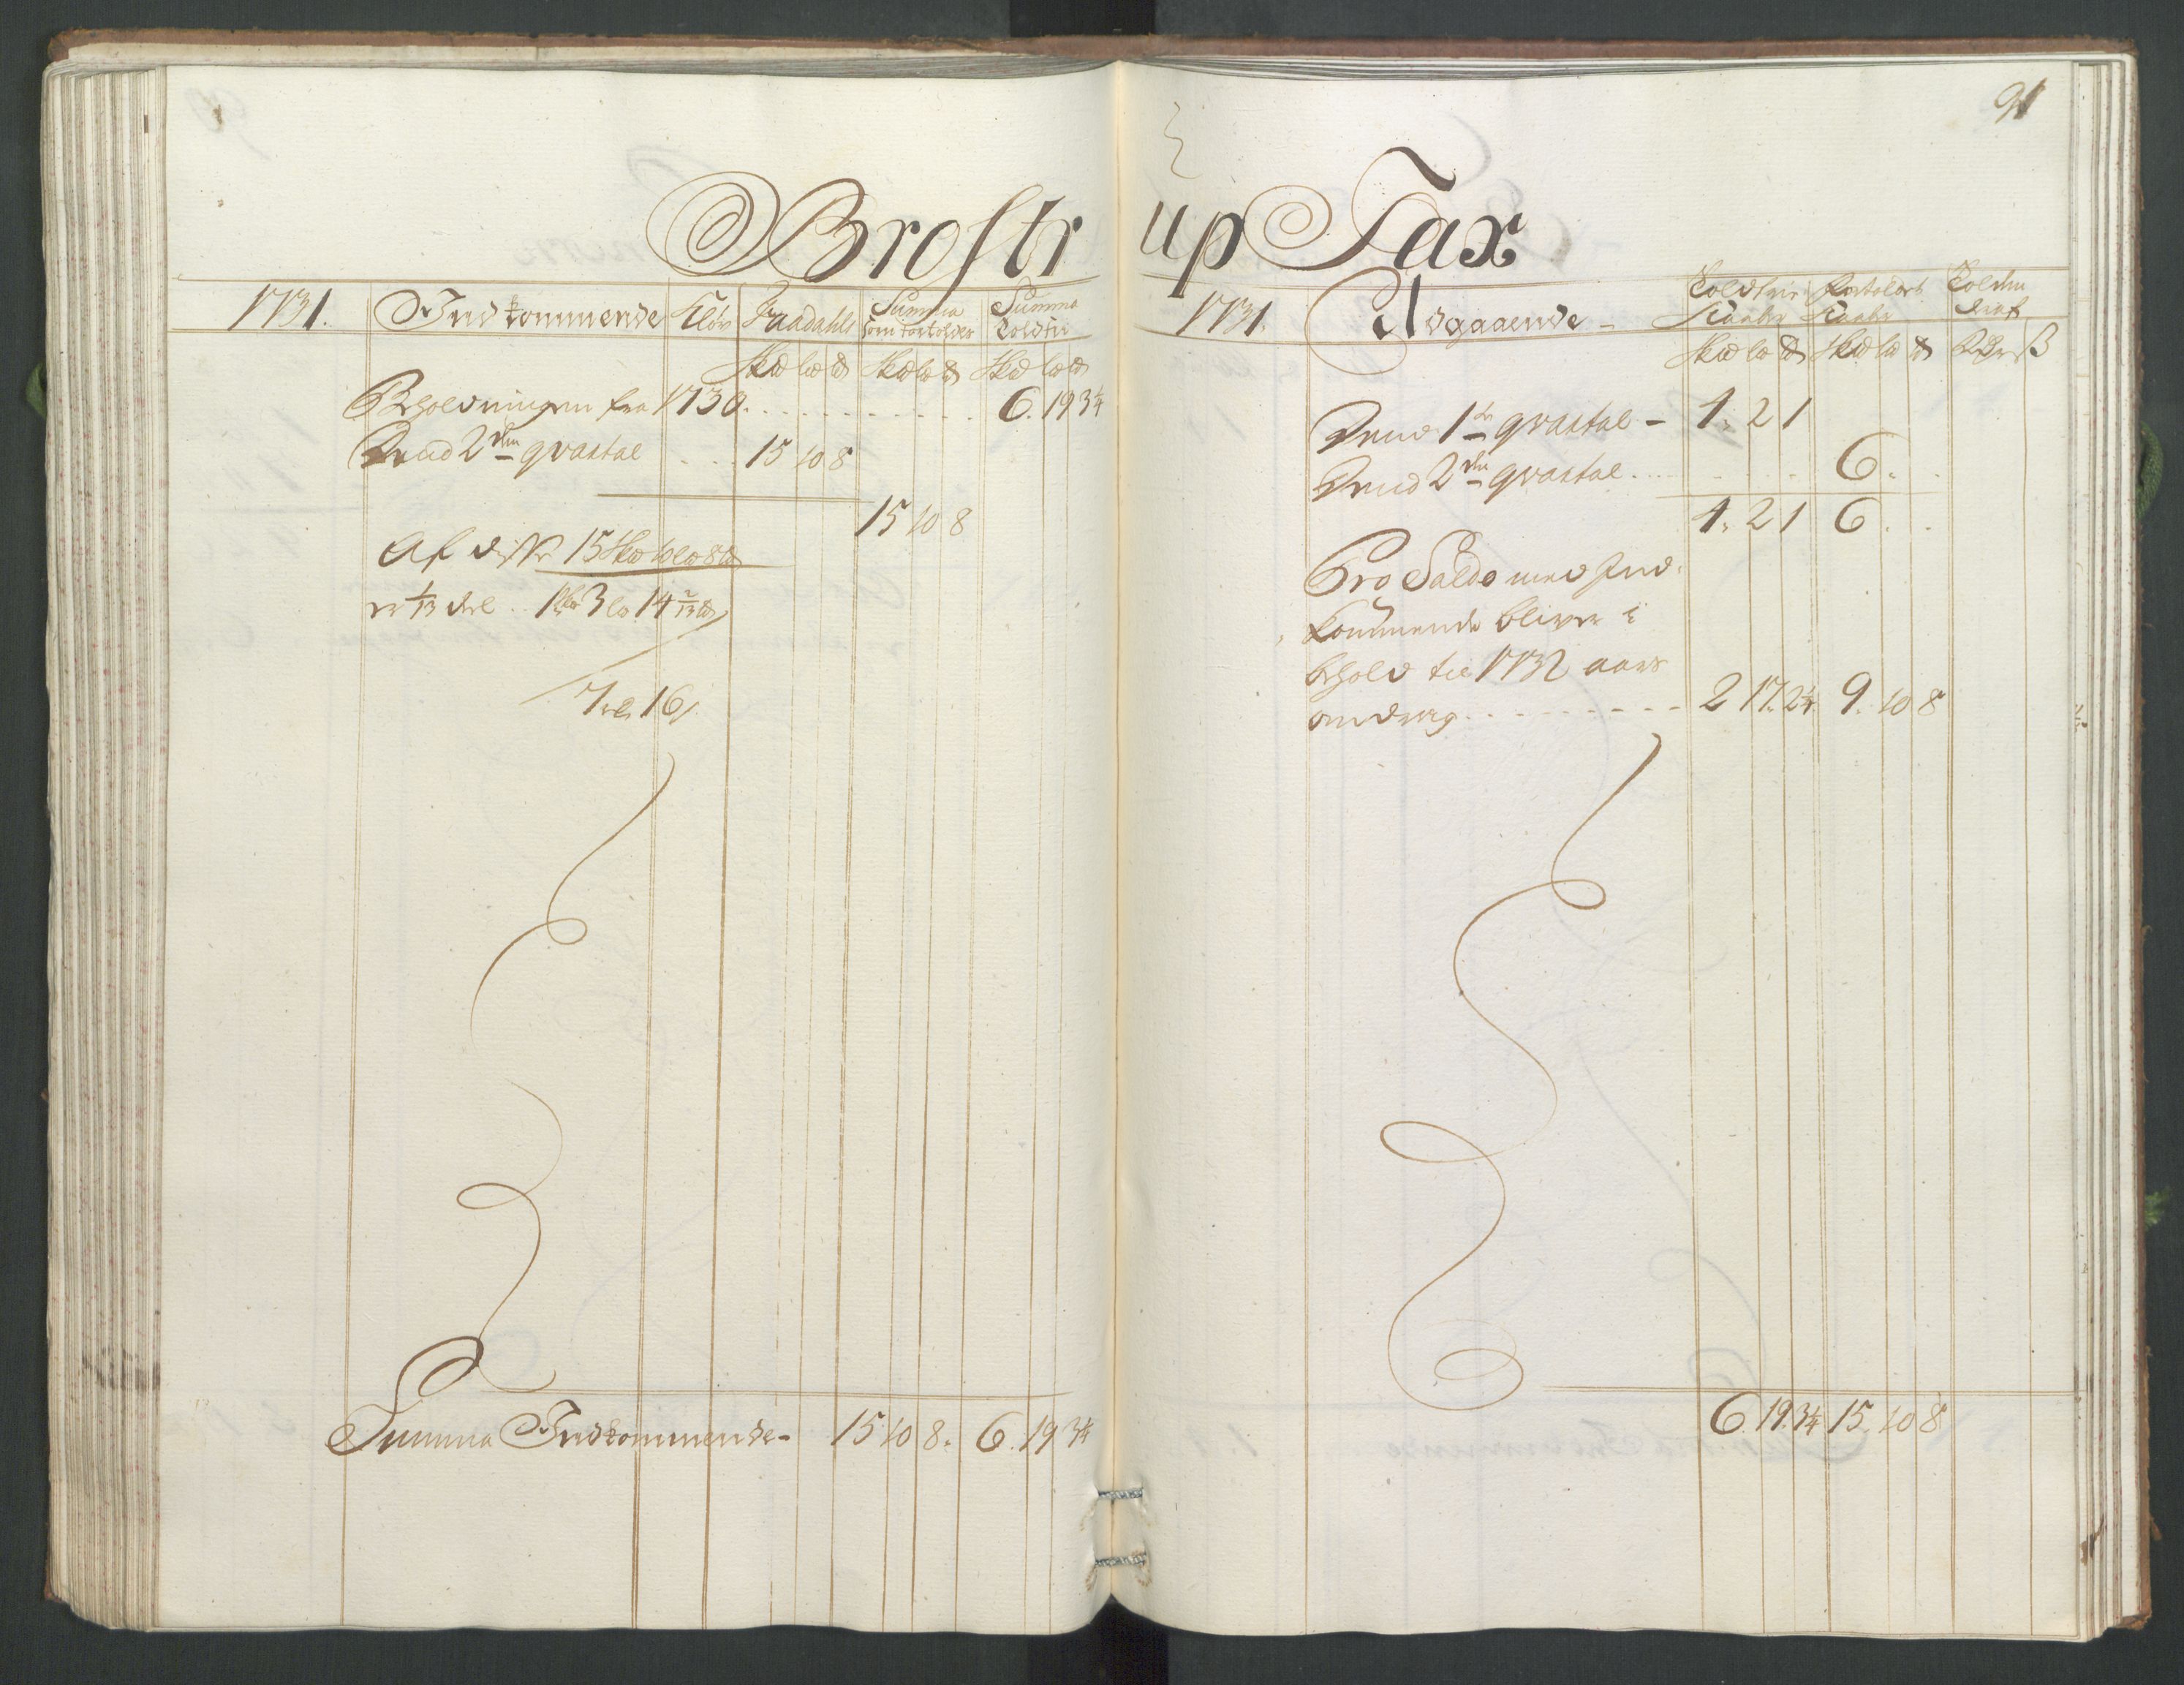 91
Brostrup Tax
1731. Indkommende Kløv Fradahls Summa som fortolder Summa Toldfri
Skd lod ℔ Skd lod ℔ Skd lod ℔
Beholdningen fra 1730. 6. 19 3¼
Dend 2den qvartal 15 10 8
15 10 8
Af disse 15 Skd 10 lod 8 ℔
er 1/13 deel 1 Skd 3 lod 14 2/13 ℔
7 rd 16
Summa Indkommende - 15 10 8. 6. 19 3¼
1731. Udgaaende - Toldfrie Skaaber Fortoldet Skaaber Tolden Deraf
Skd lod ℔ Skd lod ℔ Rdr ß
Dend 1te qvartal - 4. 2 1
Dend 2den qvartal 6.
4. 2 1 6
Pro Saldo med Ind-
kommende bliver i
behold til 1732 aars
andrag 2 17. 2¼ 9. 10 8
6 19. 3¼ 15. 10 8